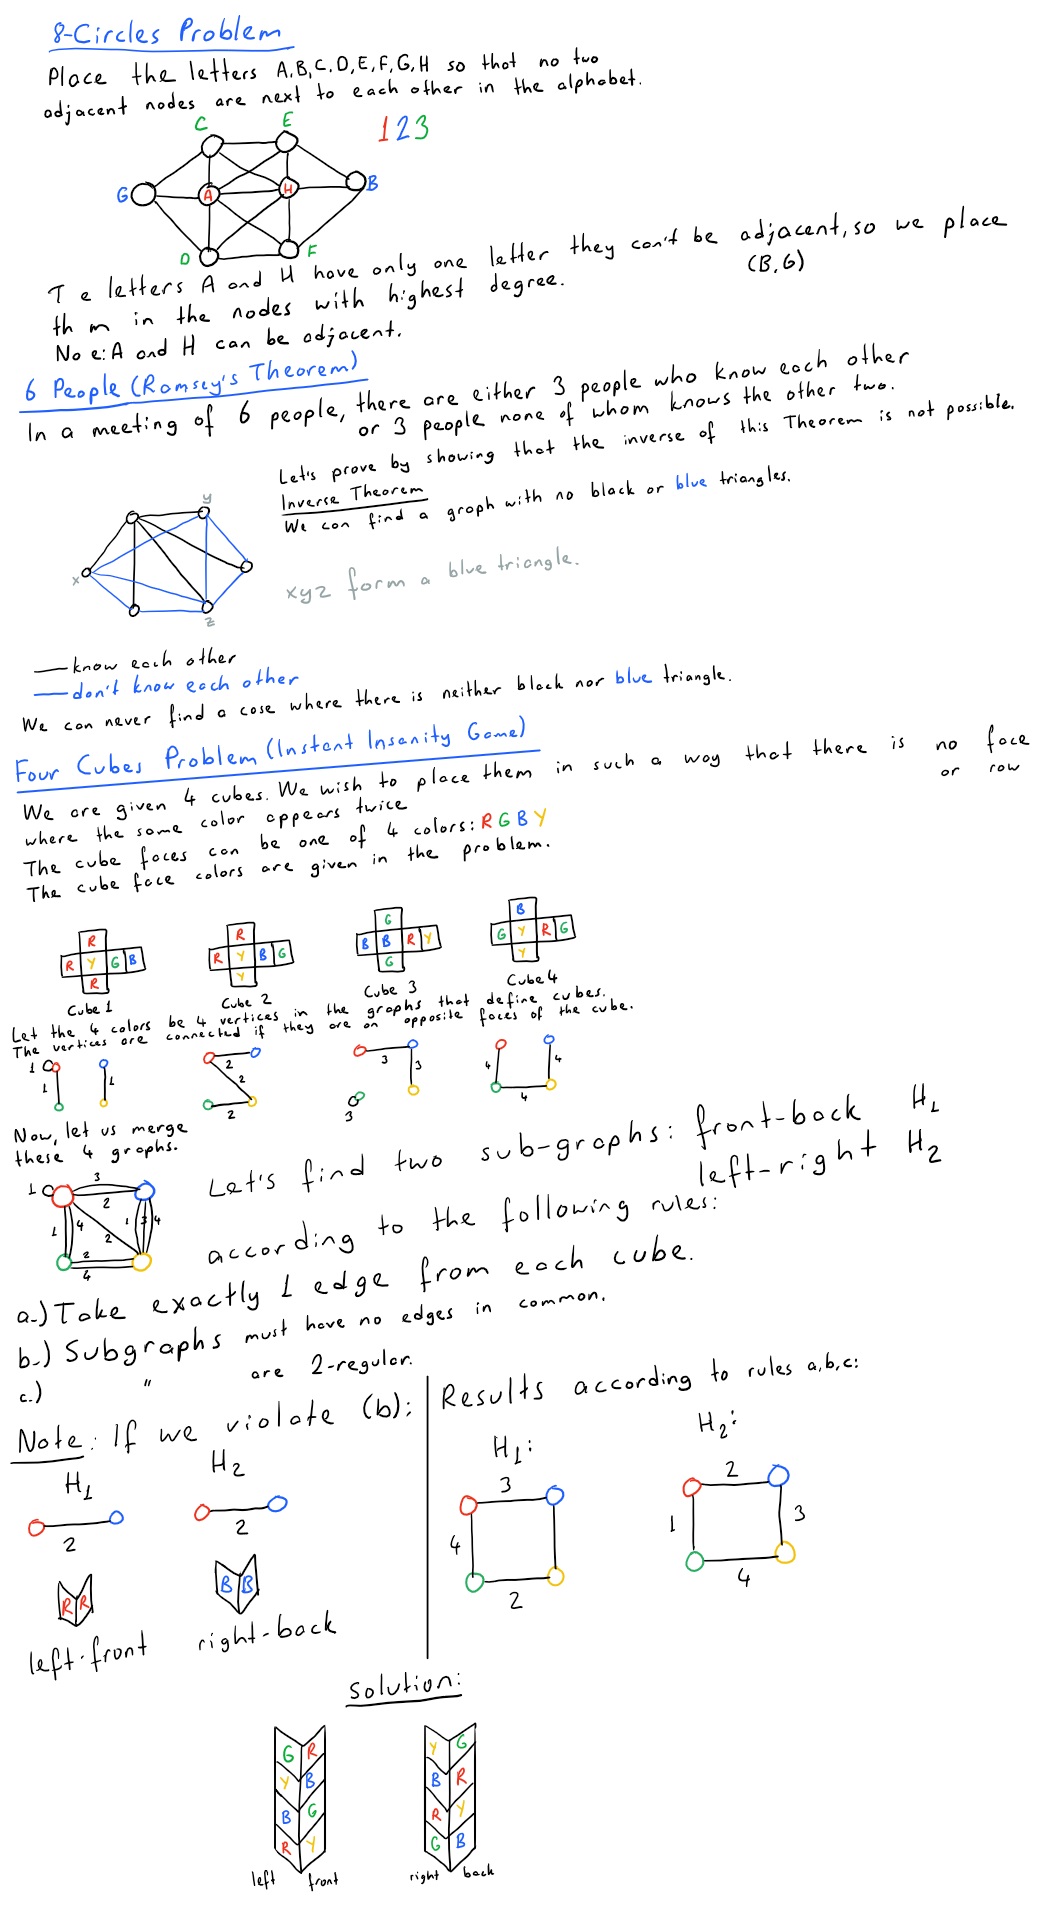 8-Circles Problem
Place the letters A,B,C,D,E,F,G,H so that no two
adjacent nodes are next to each other in the alphabet.
C E 1 2 3
G A H B
D F
T e letters A and H have only one letter they can't be adjacent, so we place
(B,G)
th m in the nodes with highest degree.
No e: A and H can be adjacent.
6 People (Ramsey's Theorem)
In a meeting of 6 people, there are either 3 people who know each other
or 3 people none of whom knows the other two.
Let's prove by showing that the inverse of this Theorem is not possible.
Inverse Theorem
We can find a graph with no black or blue triangles.
y
x
z
xyz form a blue triangle.
know each other
don't know each other
We can never find a case where there is neither black nor blue triangle.
Four Cubes Problem (Instant Insanity Game)
We are given 4 cubes. We wish to place them in such a way that there is no face
or row
where the same color appears twice
The cube faces can be one of 4 colors: R G B Y
The cube face colors are given in the problem.
R
R Y G B
R
Cube 1
R
R Y B G
Y
Cube 2
G
B B R Y
G
Cube 3
B
G Y R G
Y
Cube 4
Let the 4 colors be 4 vertices in the graphs that define cubes.
The vertices are connected if they are on opposite faces of the cube.
1 1 1
2 2 2
3 3 3
4 4 4
Now, let us merge
these 4 graphs.
1 3 2
1 4 2 1 3 4
2
4
Let's find two sub-graphs: front-back H1
left-right H2
according to the following rules:
a.) Take exactly 1 edge from each cube.
b.) Subgraphs must have no edges in common.
c.) " are 2-regular.
Note: If we violate (b):
H1 H2
2 2
R R
B B
left-front right-back
Results according to rules a,b,c:
H1:
3
4
2
H2:
2
1 3
4
Solution:
G R Y G
Y B B R
B G R Y
R Y G B
left front right back